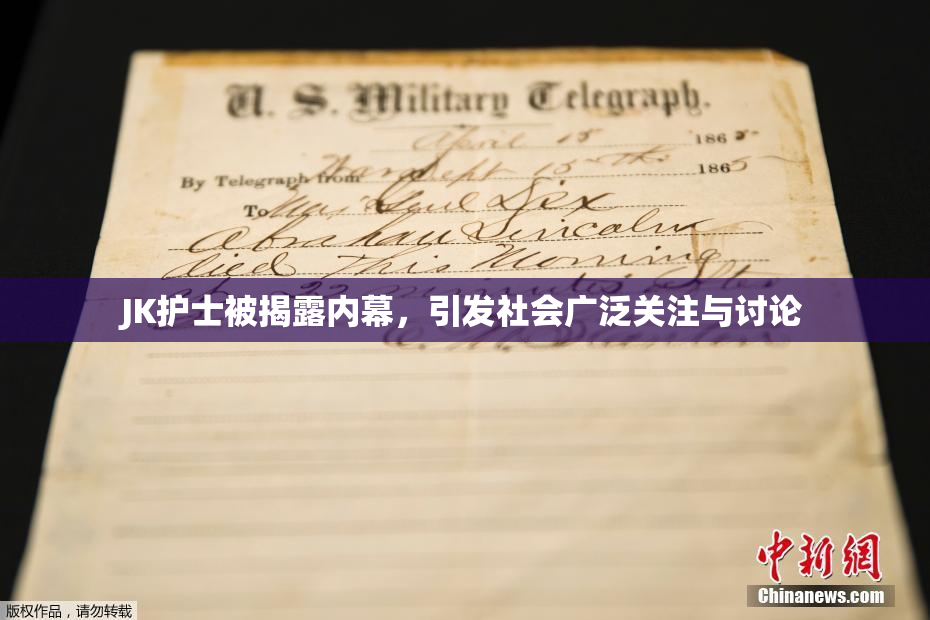 U. S. Military Telegraph.
April 15 1865
By Telegraph from War Dept 15th 1865
To Maj Genl Dix
Abraham Lincoln
died This Morning
at 22 minutes after
JK护士被揭露内幕，引发社会广泛关注与讨论
中新网
Chinanews.com
版权作品，请勿转载